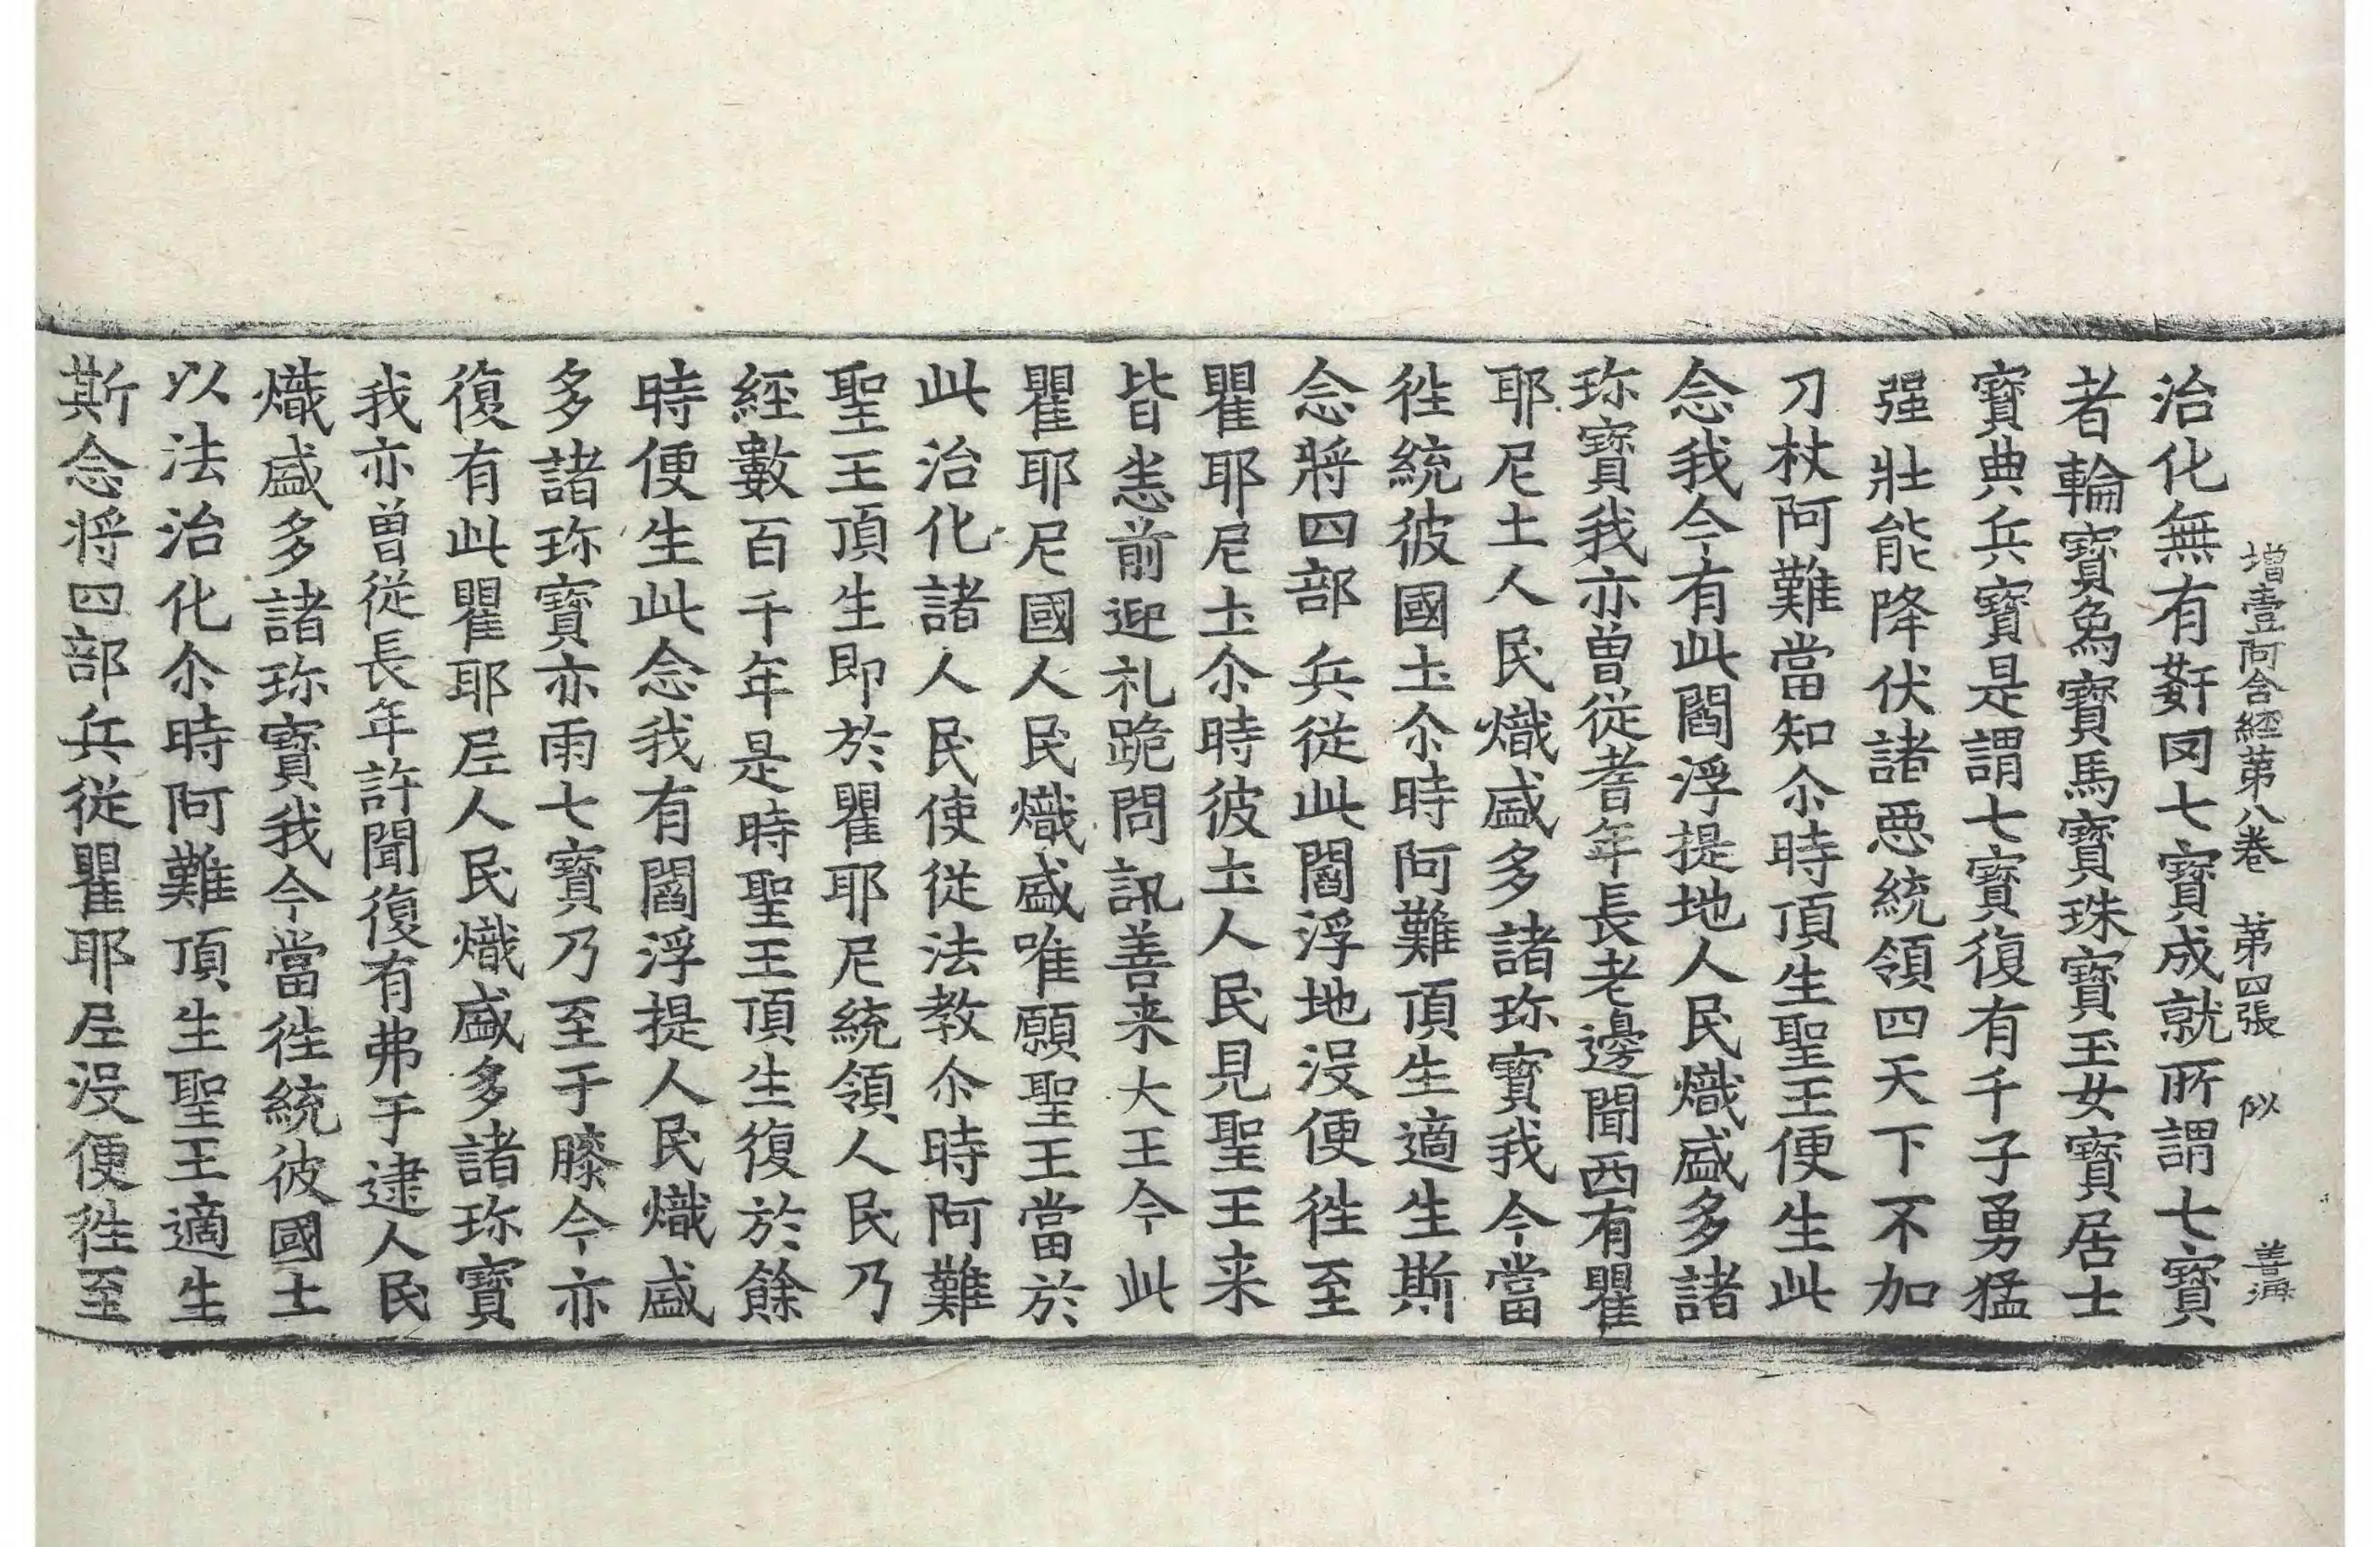 增壹阿含經第八卷 第四張 似 善海
治化無有姧罔七寶成就所謂七寶
者輪寶爲寶馬寶珠寶玉女寶居士
寶典兵寶是謂七寶復有千子勇猛
强壯能降伏諸惡統領四天下不加
刀杖阿難當知尒時頂生聖王便生此
念我今有此閻浮提地人民熾盛多諸
珎寶我亦曾從耆年長老邊聞西有瞿
耶尼土人民熾盛多諸珎寶我今當
徃統彼國圡尒時阿難頂生適生斯
念將四部兵從此閻浮地沒便徃至
瞿耶尼圡尒時彼圡人民見聖王来
皆悉前迎礼跪問訊善来大王今此
瞿耶尼國人民熾盛唯願聖王當於
此治化諸人民使從法教尒時阿難
聖王頂生即於瞿耶尼統領人民乃
經數百千年是時聖王頂生復於餘
時便生此念我有閻浮提人民熾盛
多諸珎寶亦雨七寶乃至于膝今亦
復有此瞿耶尼人民熾盛多諸珎寶
我亦曾從長年許聞復有弗于逮人民
熾盛多諸珎寶我今當徃統彼國土
以法治化尒時阿難頂生聖王適生
斯念将四部兵從瞿耶尼沒便徃至